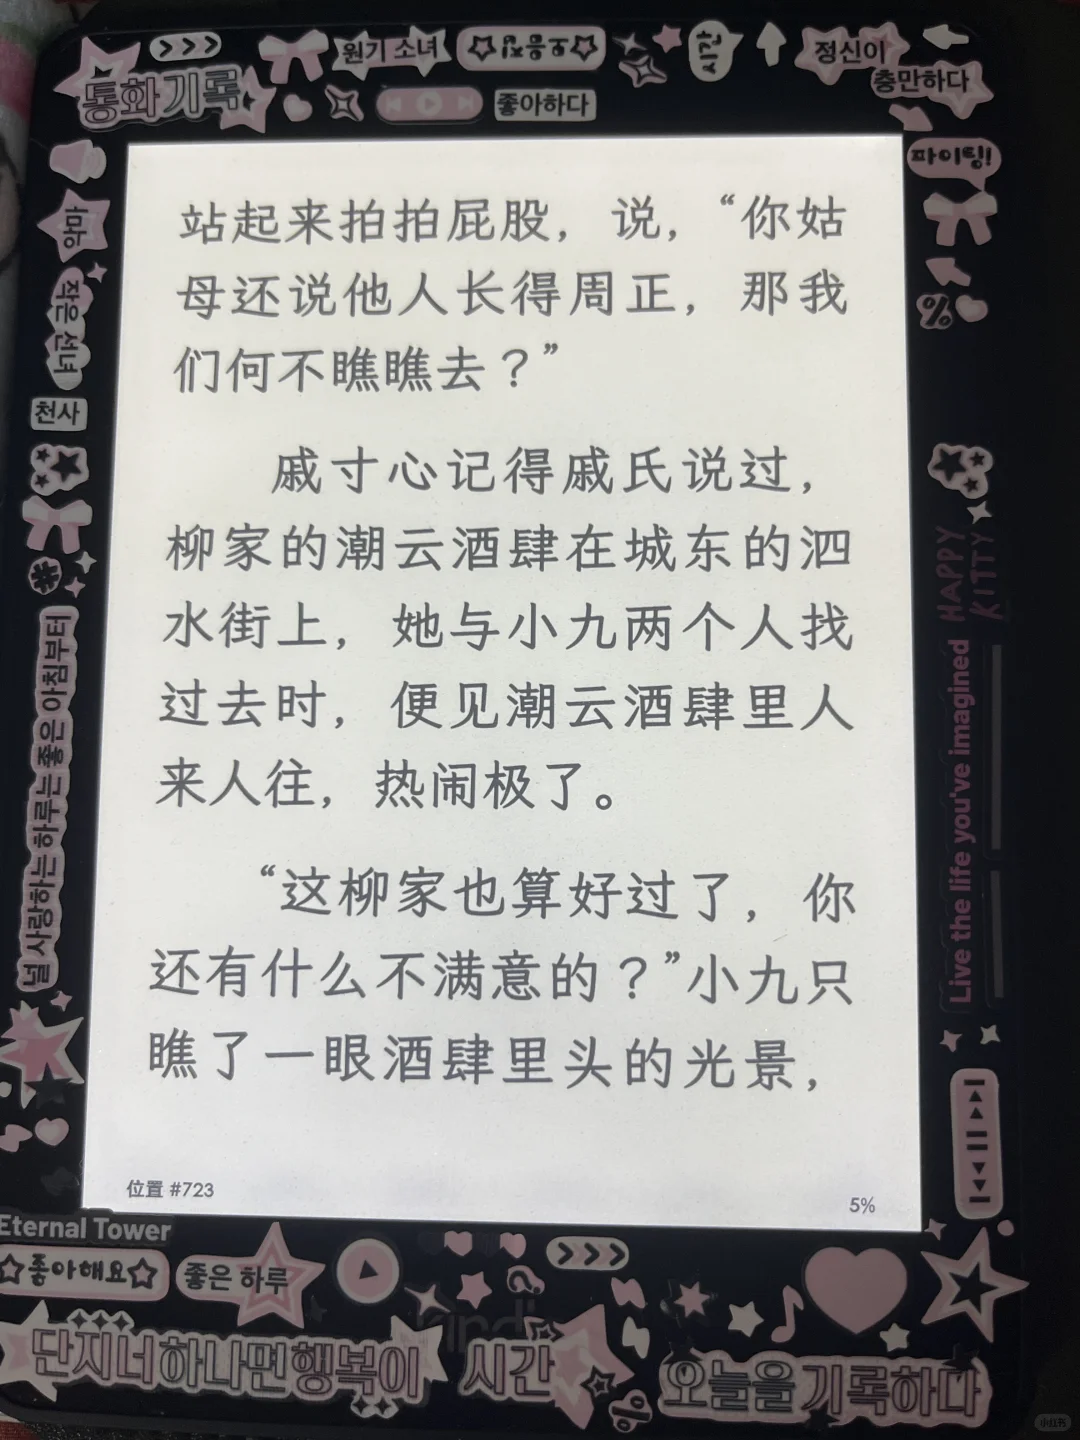 통화기록
원기 소녀
정신이
충만하다
좋아하다
파이팅!
작은 선녀
천사
널 사랑하는 하루는 좋은 아침부터
站起来拍拍屁股，说，“你姑
母还说他人长得周正，那我
们何不瞧瞧去？”
戚寸心记得戚氏说过，
柳家的潮云酒肆在城东的泗
水街上，她与小九两个人找
过去时，便见潮云酒肆里人
来人往，热闹极了。
“这柳家也算好过了，你
还有什么不满意的？”小九只
瞧了一眼酒肆里头的光景，
位置 #723
5%
HAPPY
KITTY
Live the life you've imagined
Eternal Tower
좀아해요
좋은 하루
단지너하나면행복이
시간
오늘을 기록하다
小红书